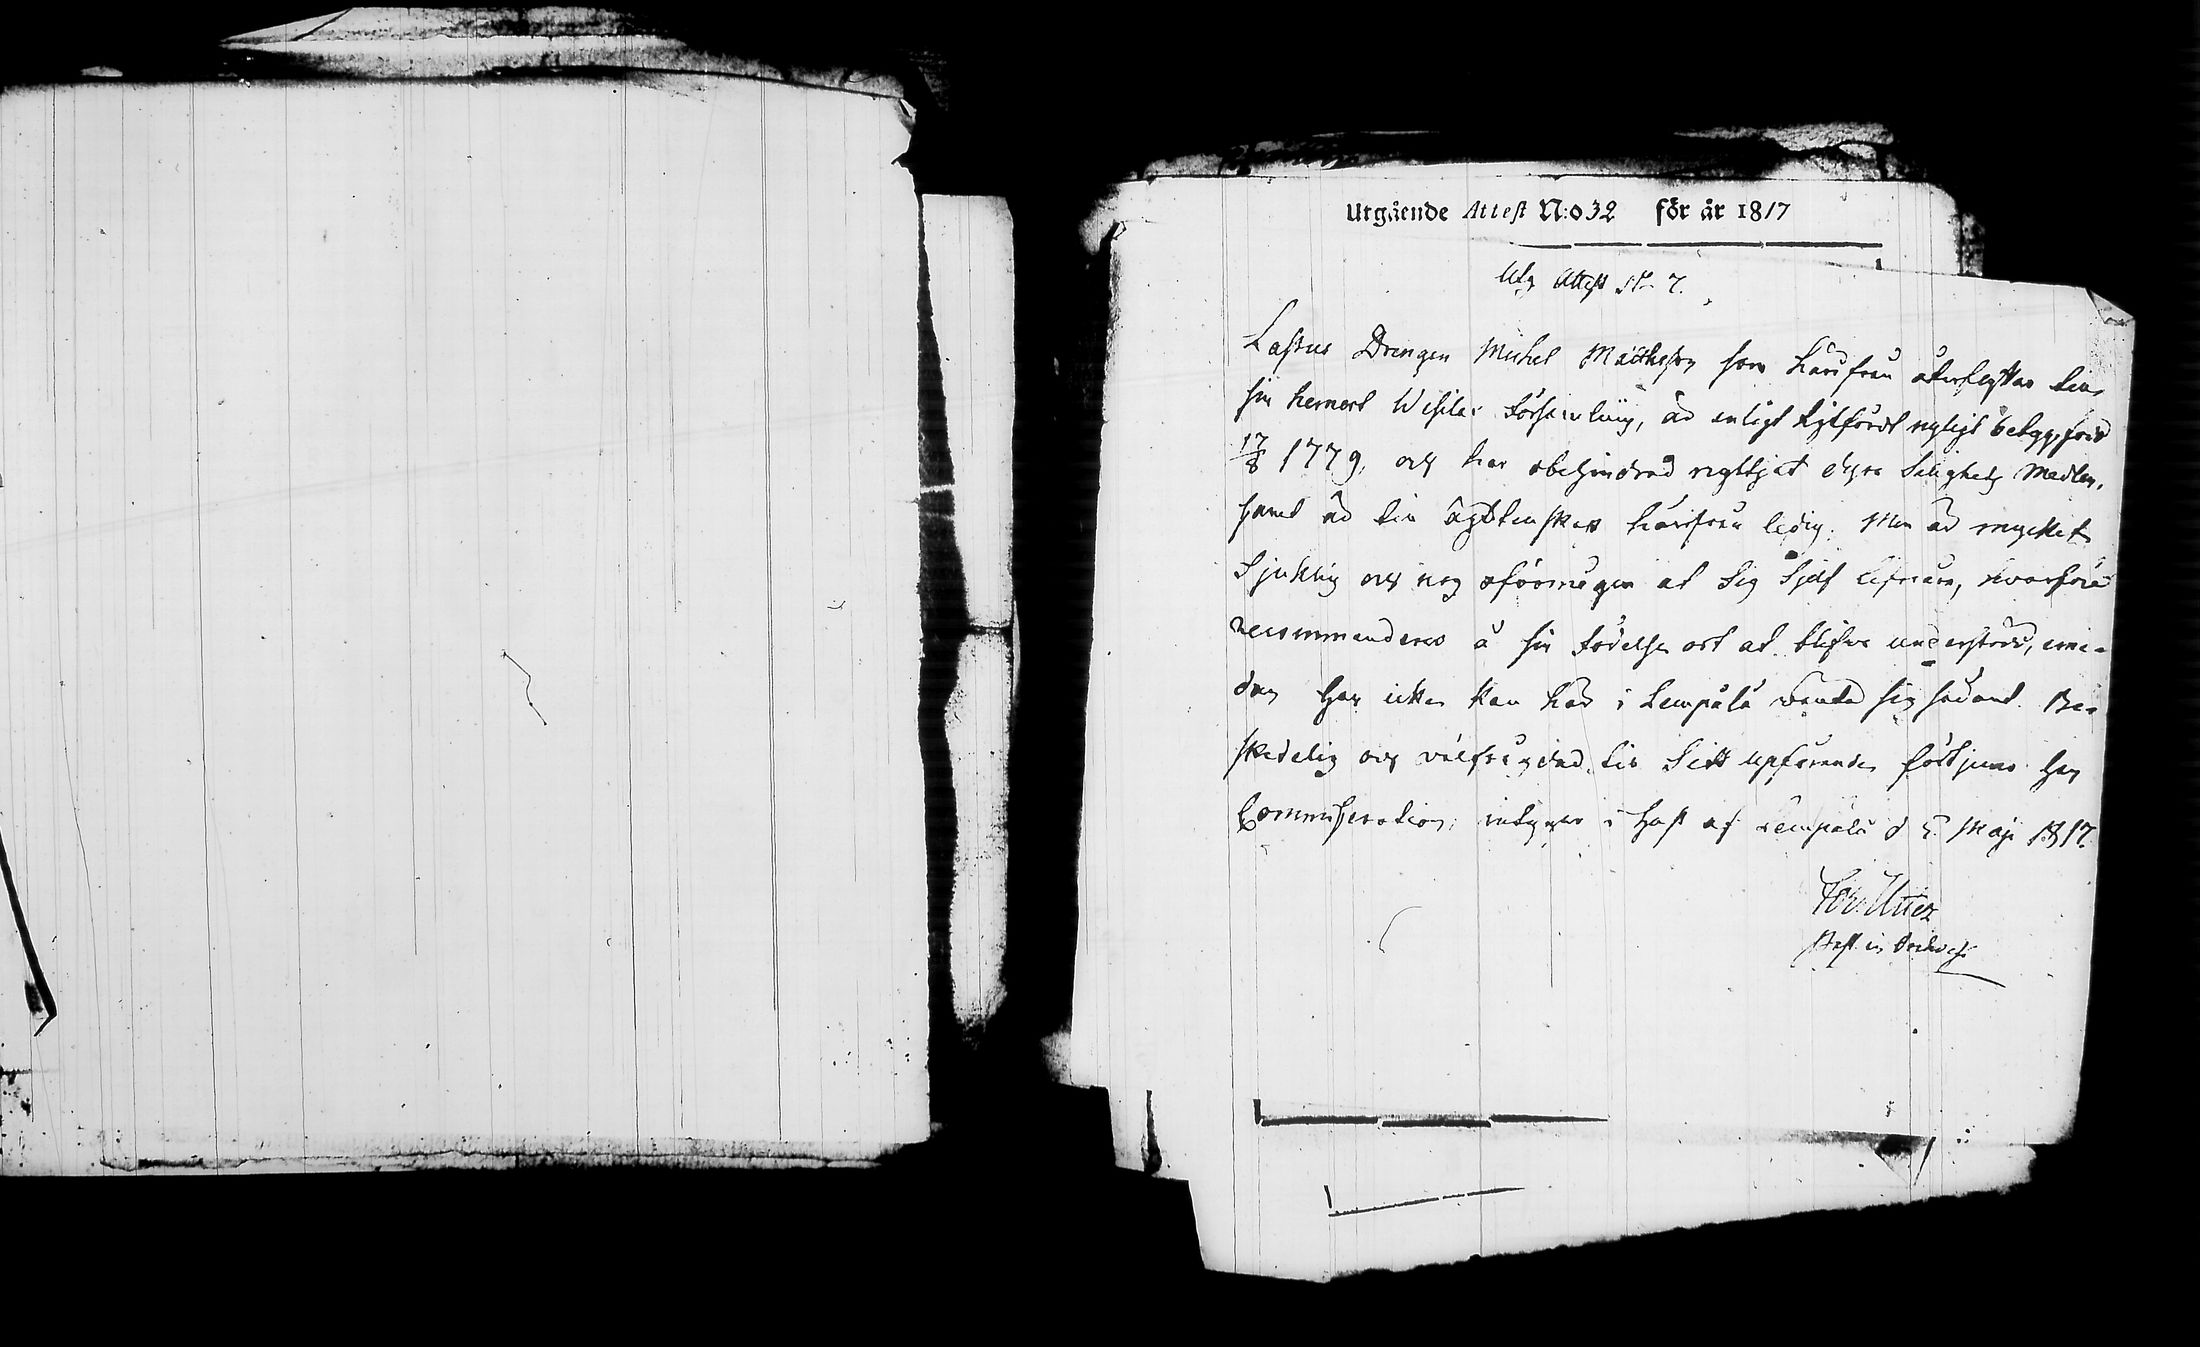 Utgående Attest N:o 32 för år 1817
Utg Attest N 7.
Drengen Michel Mattheson som härifrån återflyttar till
sin hemort Församling, är enligt hitfördt nyligt betyg, född
17/8 1779, och har obehindrad nyttjat dyra Salighets Medlen,
samt är till ägtenskap härifrån ledig. Men är mycket
Sjuklig och nog oförmögen at Sig Sjelf lifnära, hvarföre
recommenderas å sin födelse ort at blifva understödd, eme-
dan han icke kan här i Lempälä vänta sig sådant. Be-
skedelig och välfrägdad till Sitt upförande förtjenar han
Commiseration; intygar i Hast af Lempälä d 5 Maji 1817.